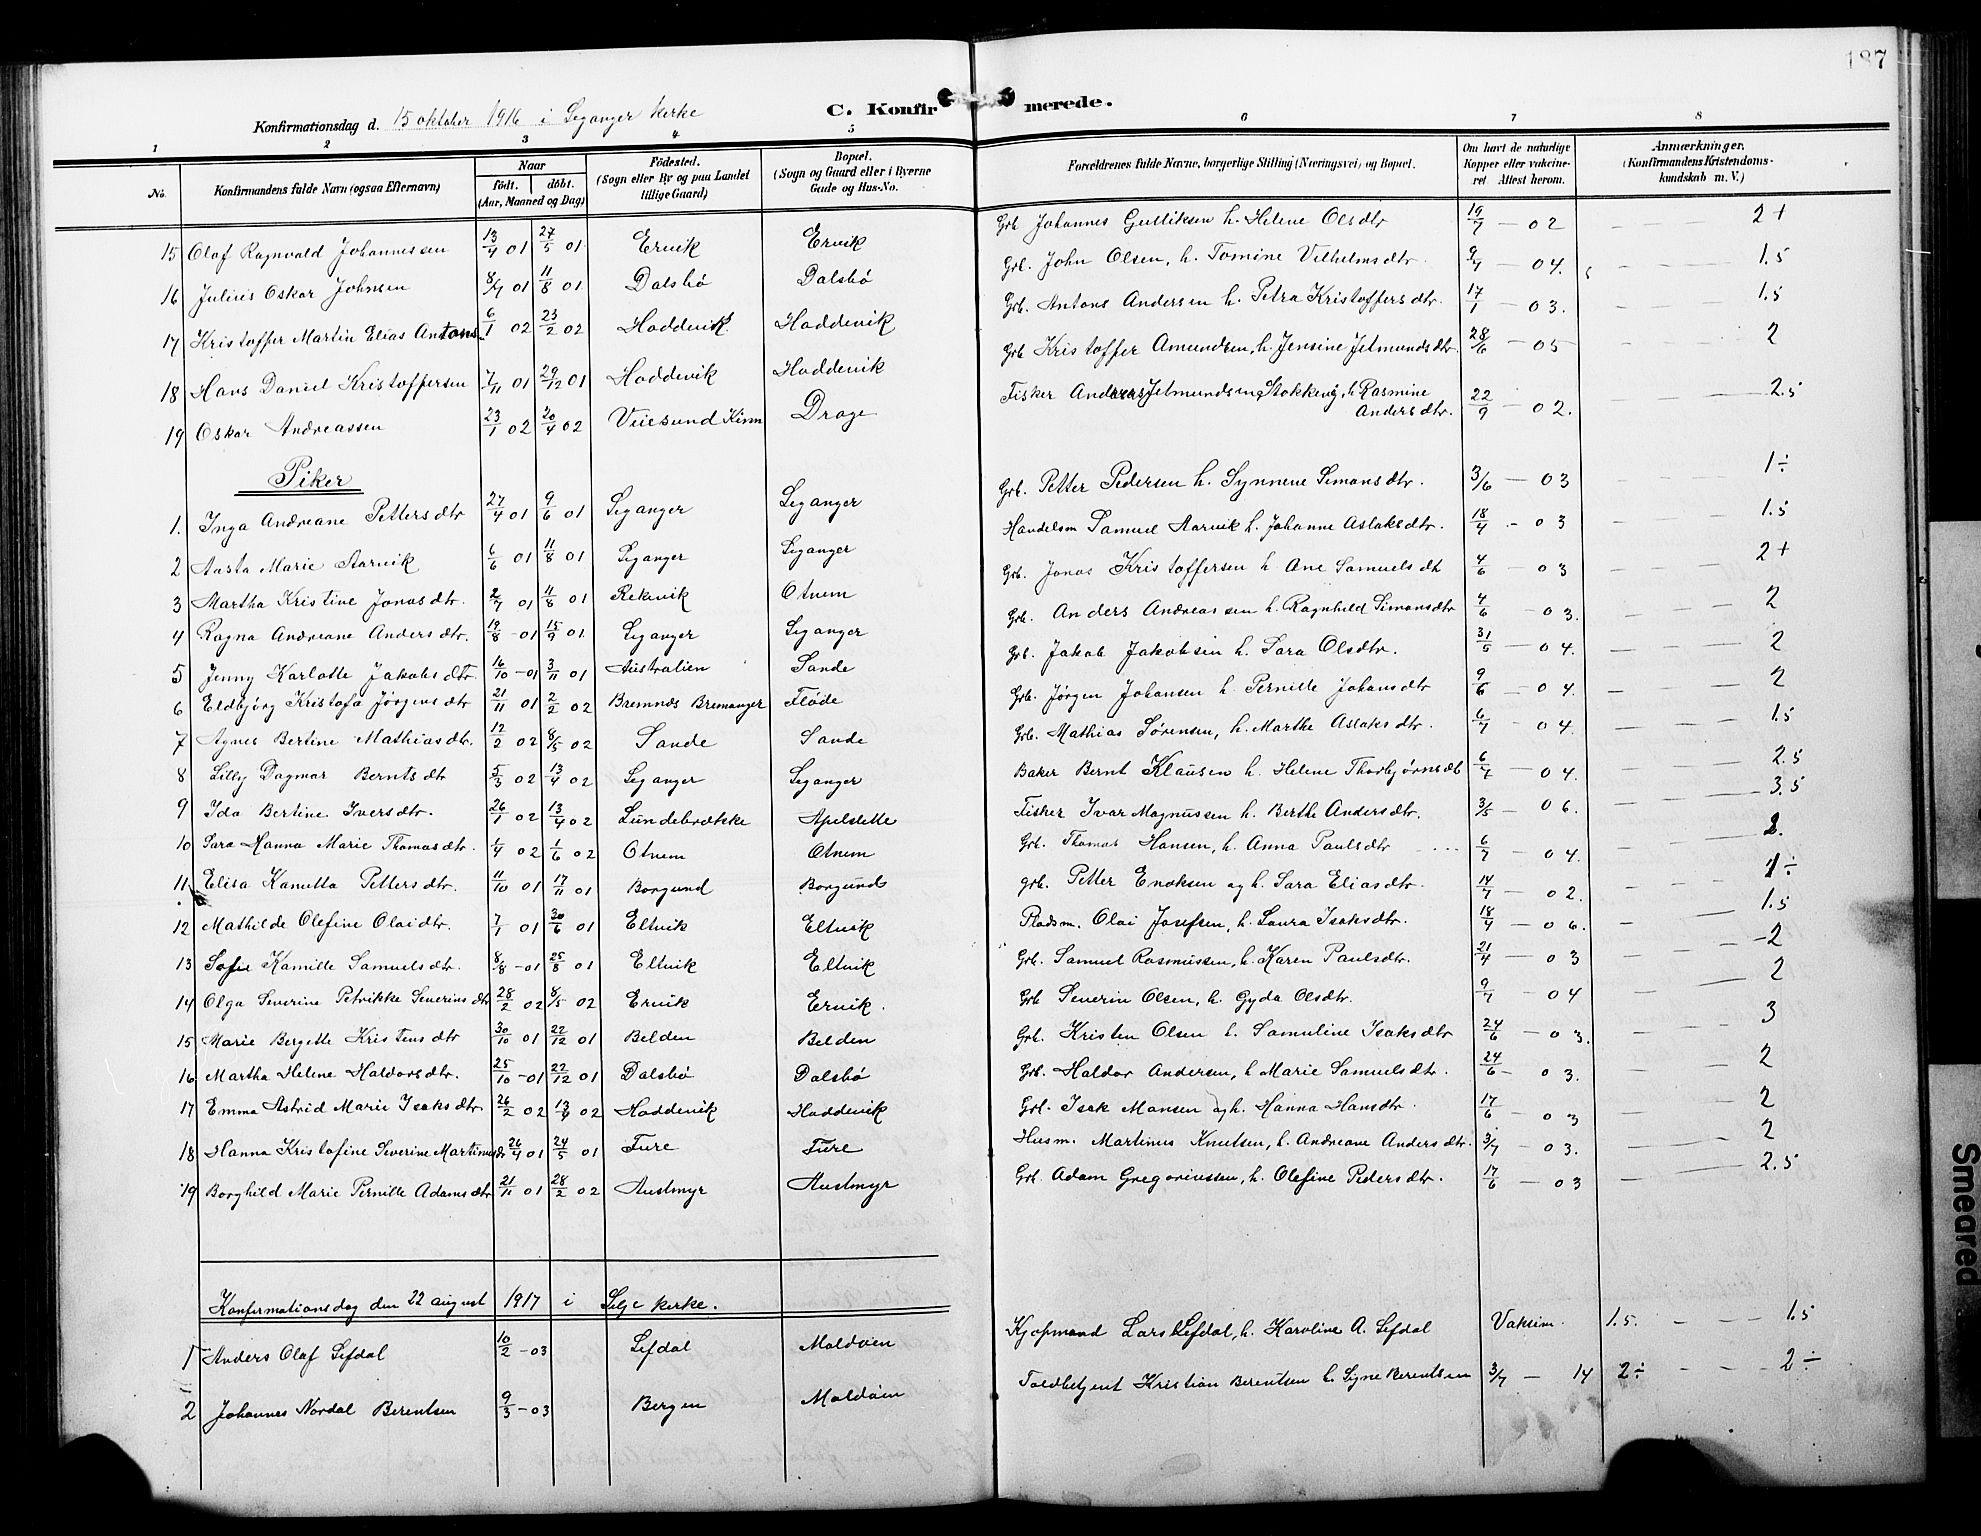 187
C. Konfirmerede.
Konfirmationsdag d. 15 oktober 1916 i Leganger kirke
1 2 3 4 5 6 7 8
No. Konfirmandens fulde Navn (ogsaa Efternavn) Naar født. døbt. (Aar, Maaned og Dag) Fødested. (Sogn eller By og paa Landet tillige Gaard) Bopæl. (Sogn og Gaard eller i Byerne Gade og Hus-No. Forældrenes fulde Navne, borgerlige Stilling (Næringsvei) og Bopæl. Om havt de naturlige Kopper eller vaccineret Attest herom. Anmærkninger. (Konfirmandens Kristendomskundskab m. V.)
15 Olaf Ragnvald Johannessen 13/4 01 27/5 01 Ervik Ervik Grb. Johannes Gulliksen h. Helene Olsdtr 19/7 — 02 2+
16 Julius Oskar Johnsen 8/7 01 11/8 01 Dalsbø Dalsbø Grb. John Olsen, h. Tomine Vilhelmsdtr. 9/7 — 04. 1.5
17 Kristoffer Martin Elias Antons. 6/1 02 23/2 02 Hoddevik Hoddevik Grb. Antons Andersen h. Petra Kristoffersdtr. 17/1 — 03. 1.5
18 Hans Daniel Kristoffersen 7/11 01 29/12 01 Hoddevik Hoddevik Grb Kristoffer Amundsen, h. Jensine Jetmundsdtr. 28/6 — 05 2
19 Oskar Andreassen 23/1 02 20/4 02 Viiesund Kinn Drage Fisker Andreas Jetmundsen Stokkeng, h. Rasmine Andersdtr. 22/9 — 02. 2.5
Piker
1. Inga Andreane Pettersdtr 27/4 01 9/6 01 Leganger Leganger Grb. Petter Pedersen h. Synnene Simonsdtr. 3/6 — 03 1÷
2 Aasta Marie Aarvik 6/6 01 11/8 01 Leganger Leganger Handelsm Samuel Aarvik h. Johanne Aslaksdtr. 18/4 — 03 1.5
3 Martha Kristine Jonasdtr. 2/7 01 11/8 01 Rekevik Otnem Grb. Jonas Kristoffersen h. Ane Samuelsdt 4/6 — 03 2+
4 Ragna Andreane Andersdtr. 19/8 — 01 15/9 01 Leganger Leganger Grb. Anders Andreassen h. Ragnhild Simonsdtr 4/6 — 03. 2
5 Jenny Karlotte Jakobsdtr. 16/10 — 01 3/11 01 Australien Sande Grb. Jakob Jakobsen h. Sara Olsdtr. 31/5 — 04. 2
6 Eldbjørg Kristofa Jørgensdtr 21/11 01 2/2 02 Bremnes Bremanger Fløde Grb. Jørgen Johansen h. Pernille Johansdtr 9/6 — 04. 2
7 Agnes Bertine Mathiasdtr. 12/2 02 8/5 02 Sande Sande Grb. Mathias Sørensen, h. Marthe Aslaksdtr. 6/7 — 04. 1.5
8 Lilly Dagmar Berntsdtr 5/3 02 13/4 02 Leganger Leganger Baker Bernt Klausen h. Helene Thorbjørnsdt 6/7 — 04. 2.5
9 Ida Bertine Iversdtr. 26/1 02 13/4 02 Lundebrække Apelsette Fisker Ivar Magnussen h. Berthe Andersdtr. 3/5 — 06. 3.5
10 Sara Hanna Marie Thomasdtr. 1/4 02 1/6 02 Otnem Otnem Grb. Thomas Hansen, h. Anna Paulsdtr 6/7 — 04. 2.
11. Elisa Kamilla Pettersdtr. 11/10 01 17/11 01 Borgund Borgund grb. Petter Enoksen og h. Sara Eliasdtr. 14/7 — 02. 1÷
12 Mathilde Olefine Olaidtr. 7/1 01 30/6 01 Eltvik Eltvik Pladsm. Olai Josefsen, h. Laura Isaksdtr. 18/4 — 06. 1.5
13 Sofie Kamille Samuelsdtr. 8/8 — 01 25/8 01 Eltvik Eltvik Grb. Samuel Rasmussen, h. Karen Paulsdtr. 21/4 — 03 2
14 Olga Severine Petrikke Severinsdtr 28/2 02 8/5 02 Ervik Ervik. Grb Severin Olsen, h. Gyda Olsdtr. 9/7 — 04 2
15 Marie Bergette Kristensdtr 30/10 01 22/12 01 Belden Belden Grb. Kristen Olsen h. Samuline Isaksdtr 24/6 — 03. 3
16 Martha Helene Haldorsdtr. 25/10 — 01 22/12 01 Dalsbø Dalsbø Grb. Haldor Andersen, h Marie Samuelsdtr. 24/6 — 03. 2
17 Emma Astrid Marie Isaksdtr. 26/2 02 13/4 02 Hoddevik Hoddevik Grb. Isak Monsen og h. Hanna Hansdtr. 17/6 03 2
18 Hanna Kristofine Severine Martinusdt 26/4 01 24/5 01 Fure Fure Husm. Martinus Knutsen, h. Andreane Andersdtr. 3/7 03. 2
19 Borghild Marie Pernille Adamsdtr 21/11 01 28/2 02 Hustmyr Hustmyr Grb. Adam Gregoriussen, h. Olefine Pedersdtr. 17/6 — 03 2.5
Konfirmationsdag den 22 august 1917 i Selje kirke.
1 Anders Olaf Lefdal 10/2 — 03 Lefdal Moldøen Kjøpmand Lars Lefdal, h. Karoline A. Lefdal Vaksin. 1.5. 1.5
2 Johannes Nordal Berentsen 9/3 — 03 Bergen Moldøen Toldbetjent Kristian Berentsen h. Signe Berentsen 3/7 — 14 2÷ 2÷
Smeared